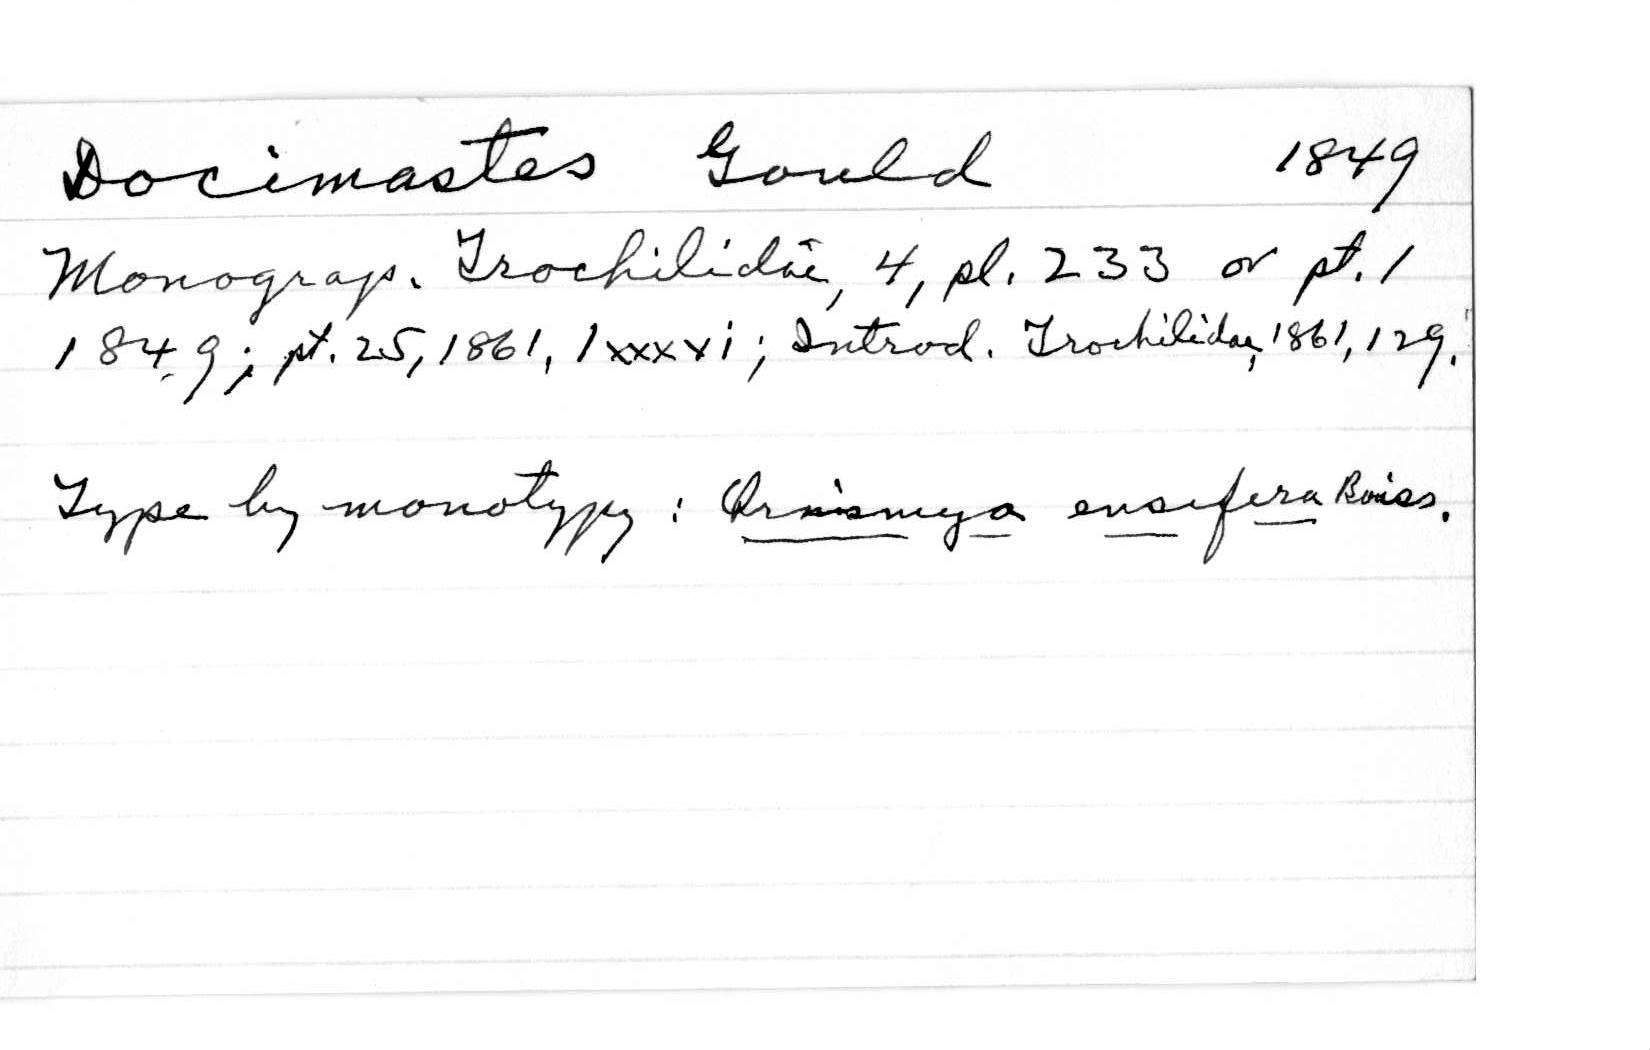 Docimastes Gould 1849
Monograp. Trochilidae, 4, pl. 233 or pt. 1
1849; pt. 25, 1861, lxxxxi; Introd. Trochilidae, 1861, 129.
Type by monotypy: Ornismya ensifera Boiss.